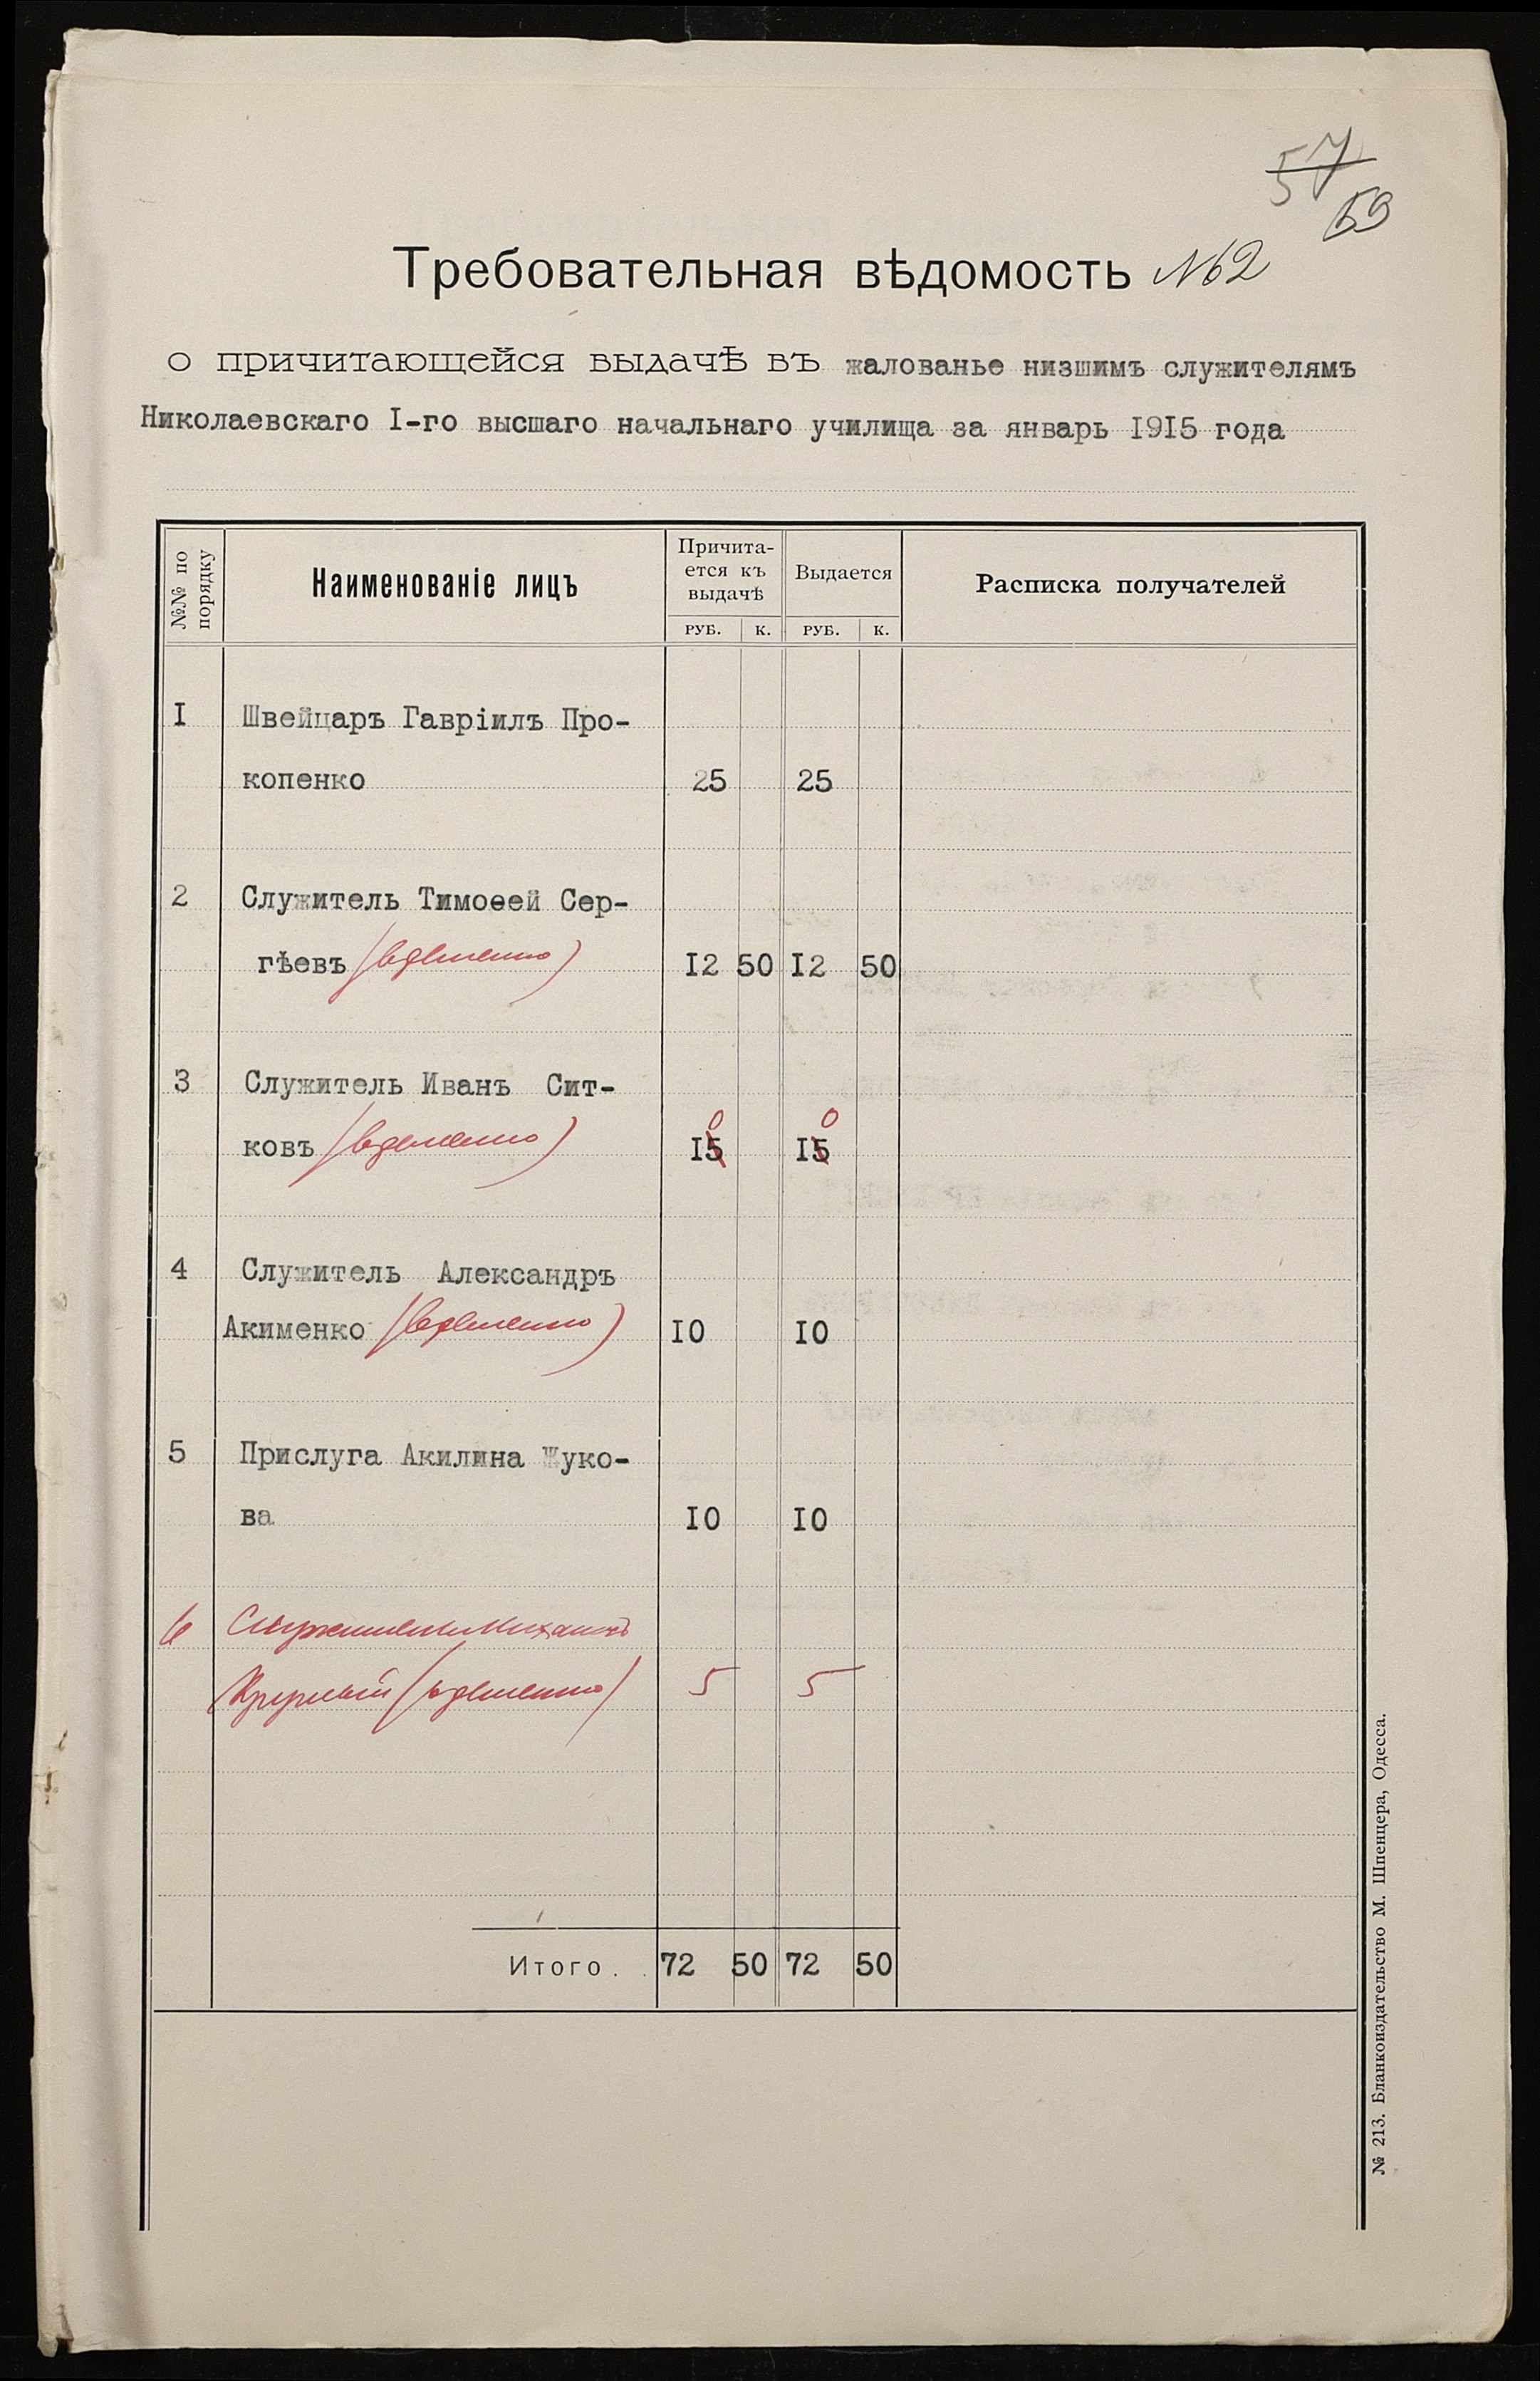 57
59
Требовательная вѣдомость №2
о причитающейся выдачѣ въ жалованье низшимъ служителямъ
Николаевскаго I-го высшаго начальнаго училища за январь 1915 года
№№ по порядку
Наименованіе лицъ
Причита-
ется къ
выдачѣ
Выдается
Расписка получателей
РУБ. К. РУБ. К.
I Швейцаръ Гавріилъ Про-
копенко 25 25
2 Служитель Тимоѳей Сер-
гѣевъ 12 50 12 50
3 Служитель Иванъ Сит-
0 0
ковъ 15 15
4 Служитель Александръ
Акименко 10 10
5 Прислуга Акилина Жуко-
ва 10 10
6 Служитель Михаилъ
5 5
Итого. 72 50 72 50
№ 213. Бланкоиздательство М. Шпенцера, Одесса.